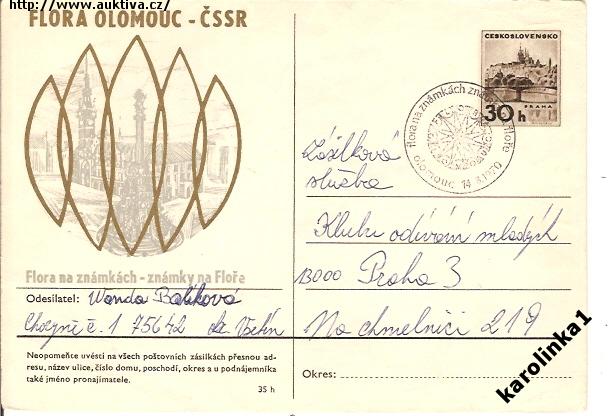 http://www.auktiva.cz/
FLORA OLOMOUC - ČSSR
Flora na známkách - známky na Floře
Odesílatel: Wanda Balíková
Choryně č. 1 75642 da Vsetín
Neopomeňte uvésti na všech poštovních zásilkách přesnou ad-
resu, název ulice, číslo domu, poschodí, okres a u podnájemníka
také jméno pronajímatele.
35 h
ČESKOSLOVENSKO
PRAHA
30 h
flora na známkách známky na Floře
olomouc 14.8.1970
Zásilková
služba
Klubu odívání mladých
13000 Praha 3
Na chmelnici 219
Okres:
karolinka1